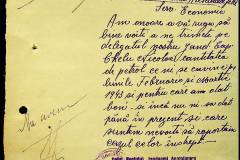 Serv. Economic
Am onoare a vă ruga să
bine voiți a ne trimite pe
delegatul nostru
Chelu Nicolae cantitatea
de petrol ce ni se cuvine pe
lunile Februarie și Martie
1943 și pentru care am dat
boni. și încă nu ni s-a dat
până în prezent și care
suntem nevoiți să raportăm
celor în drept.
Nu avem